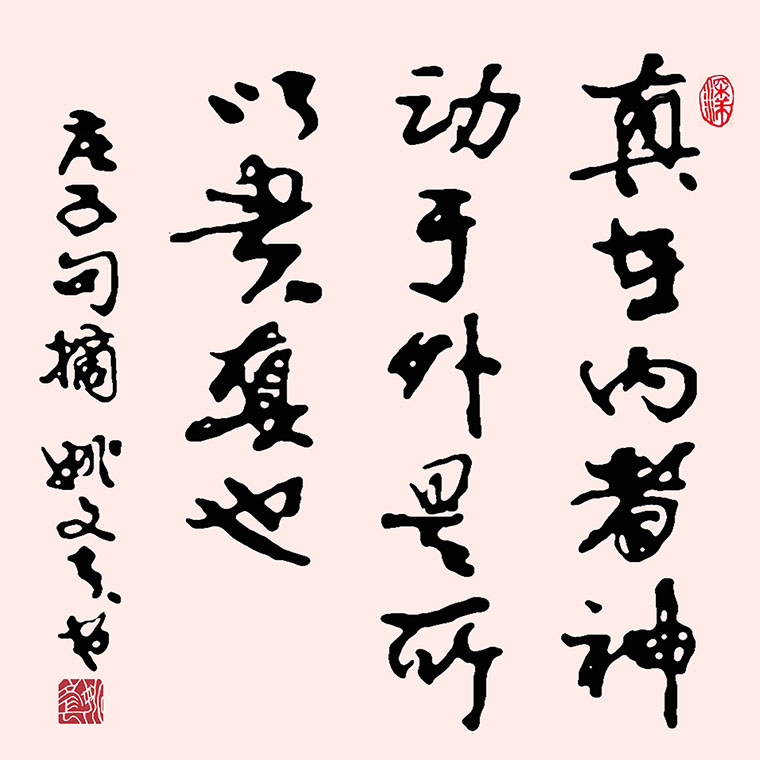 真在内者神
动于外是所
以贵真也
庄子句摘 姚文奎书